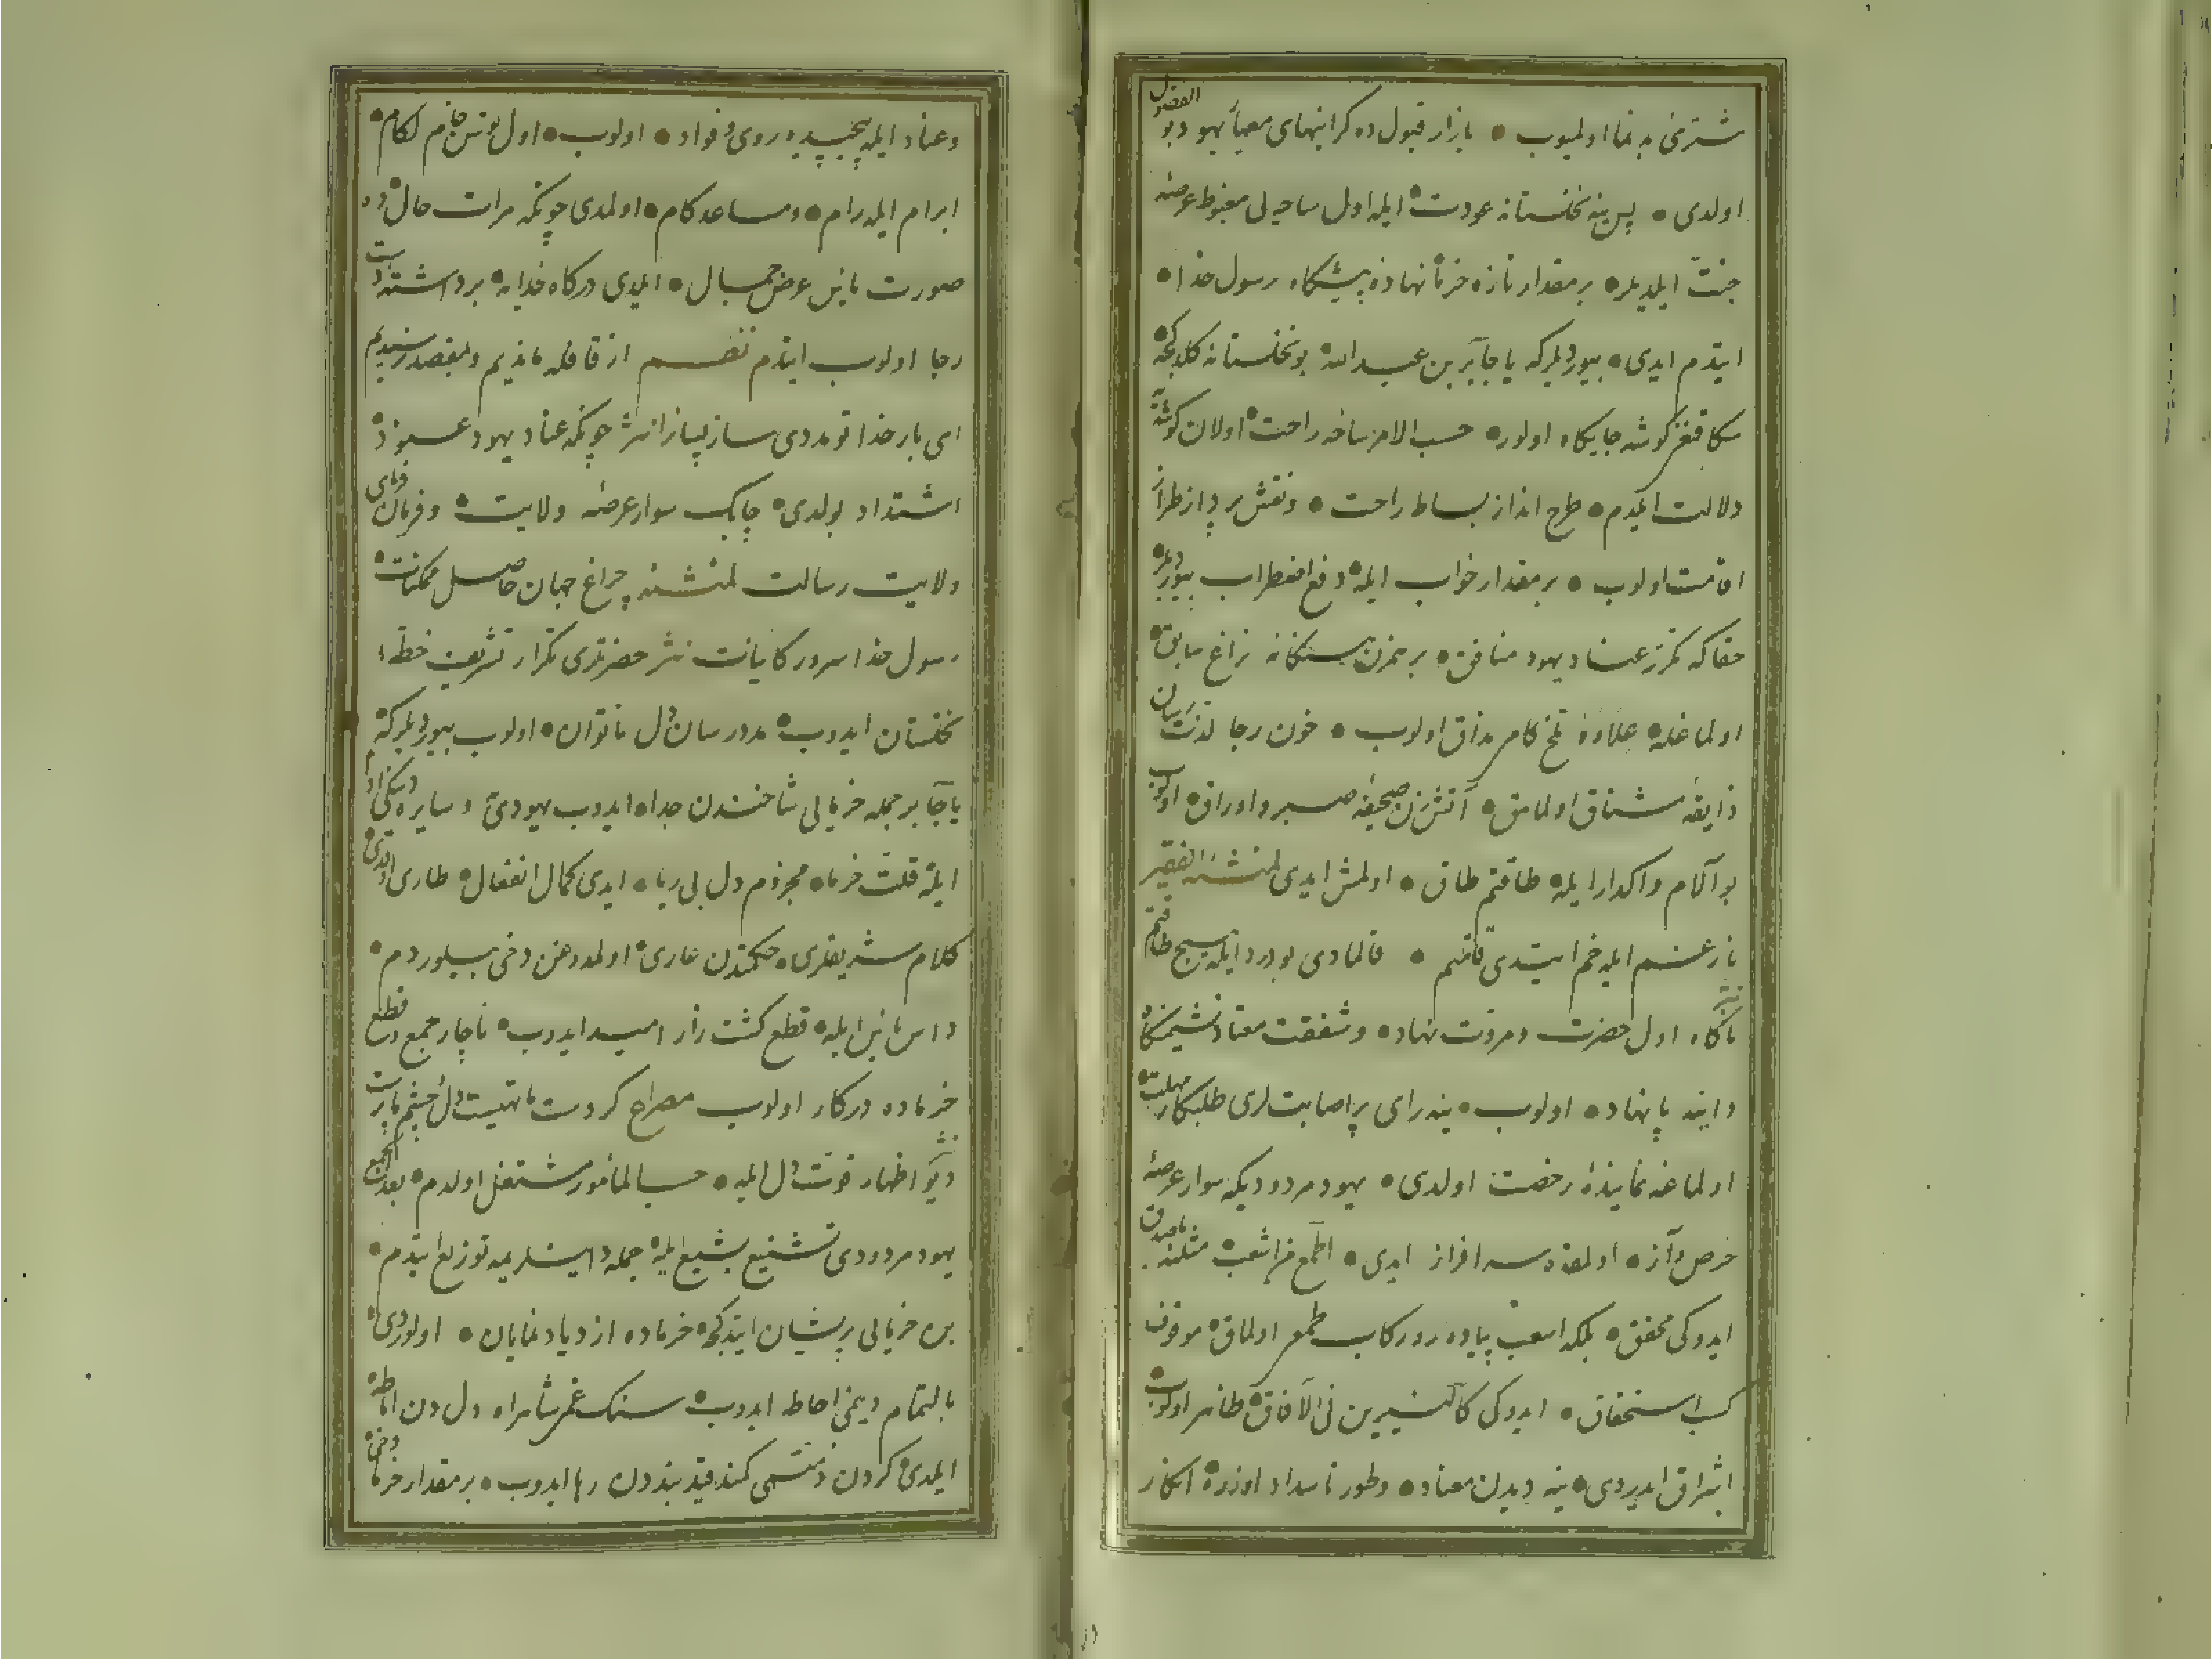 مشتری به نما اولمیوب • بازار قبول ده کرانبهای معیبا یهود بو الفضول
اولدی • پس ینه نخلستانه عودت ایله اول ساحه لی مغبوط عرصه
جنت ایلدیلر • بر مقدار تازه خرما نهاده پیشگاه رسول خدا •
ایتدم ایدی • بیوردیلر که یا جابر بن عبد الله بو نخلستانه کلدکجه
سکا قنغی کوشه جایگاه اولور • حسب الامر ساخه راحت اولان کوشه
دلالت ایلدم • طرح انداز بساط راحت • ونقش پرداز طراز
اقامت اولوب • بر مقدار خواب ایله دفع اضطراب بیوردیلر
حقا که تکرر عناد یهود منافق •
اولماغله • علاوه تلخ کام مذاق اولوب • خون رجا لذت رسان
ذایقه مشتاق اولمامق • آتش زن صحیفه صبر و اوراق اولوب
بو آلام و اکدار ایله طاقتم طاق • اولمش ایدی لمنشئه الفقیر
بار غم ایله خم ایتدی قامتم • قالمادی بو درد ایله هیچ طاقتم
نثر ناکاه اول حضرت و مروت نهاد • و شفقت معتاد نشیمنگاه
داینه پا نهاده اولوب • ینه رای پر اصابت لری طلبکار مهلت
اولماغه نماینده رخصت اولدی • یهود مردود دیکه سوار عرصه
حرص و آز • اولمقده سرافراز ایدی • اطمع من اشعب مثلنه ناصدق
ایدوکی محقق • بلکه اشعب پیاده رو رکاب طمع اولماق موقوف
کسب استحقاق • ایدوکی کالشمس فی الآفاق ظاهر اولوب
اشراق ایدردی • ینه دیدن معتاد • و طور ناسداد اوزره انکار
وعناد ایله پیچیده روی فؤاد • اولوب • اول توسن خام لکام •
ابرام ایله رام • ومساعد کام • اولمدی چونکه مرات حال ده
صورت یأس عرض جمال • ایلدی درگاه خدایه برداشته دست
رجا اولوب ایتدم نظم از قافله ماندیم و بمقصد نرسیدیم
ای بار خدا تو مددی ساز نیاز را نثر چونکه عناد یهود عنود
اشتداد بولدی • چابک سوار عرصه ولایت • و فرمان فرمای
ولایت رسالت لمنشئه چراغ جهان حاصل ممکنات
رسول خدا سرور کاینات نثر حضرتلری تکرار تشریف خطه
نخلستان ایدوب • مدد رسان دل ناتوان • اولوب بیوردیلر که
یا جابر جمله خرمالی شاخندن جدا ایدوب یهودی و سایر دینکی ادا
ایله قلت خرما • مجزوم دل بی ریا • ایدی کمال انفعال طاری اولدی
کلام شریفلری • حکمتدن عاری اولمدوغن دخی بیلوردم •
داس یأس ایله قطع کشت زار امید ایدوب • ناچار جمع و قطع
خرماده درکار اولوب مصراع کر دست ما تهیست دل و چشم ما پرست
نثر دیو اظهار قوت دل ایله • حسب المأمور مشتغل اولدم • بعد الجمع
یهود مردودی تشنیع بشیع ایله جمله داینلریمه توزیع ایتدم •
بن خرمالی پریشان ایتدکجه خرماده ازدیاد نمایان • اولوردی •
بالتمام دینمی احاطه ایدوب • سنک غمی شاهراه دل دن اماطه
ایلدی کردن ذمتمی کمند قید بنددن رها ایدوب • بر مقدار خرما دخی